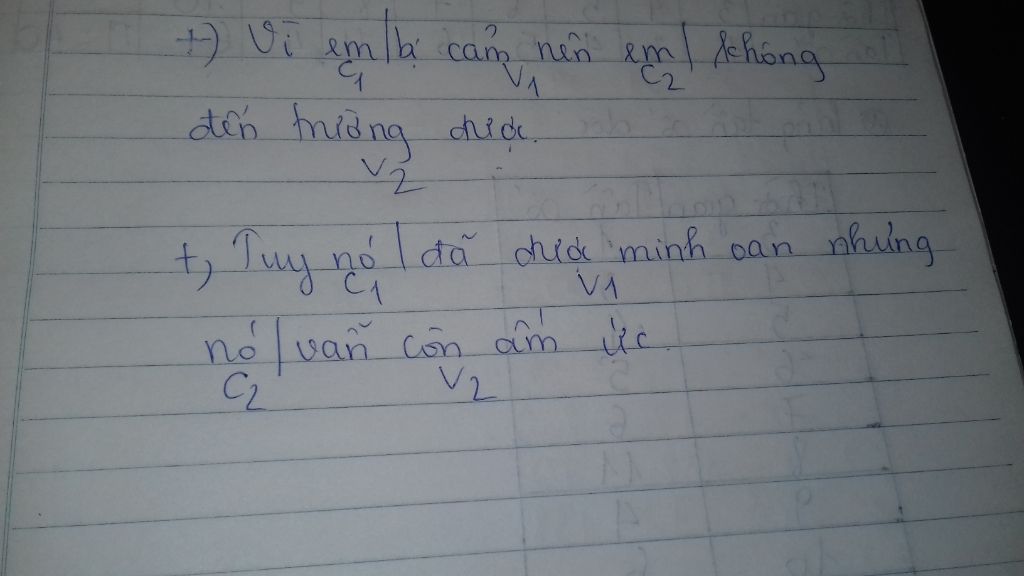 +) Vì em / bị cảm nên em / không
C1 V1 C2
đến trường được.
V2
+, Tuy nó / đã được minh oan nhưng
C1 V1
nó / vẫn còn ấm ức.
C2 V2